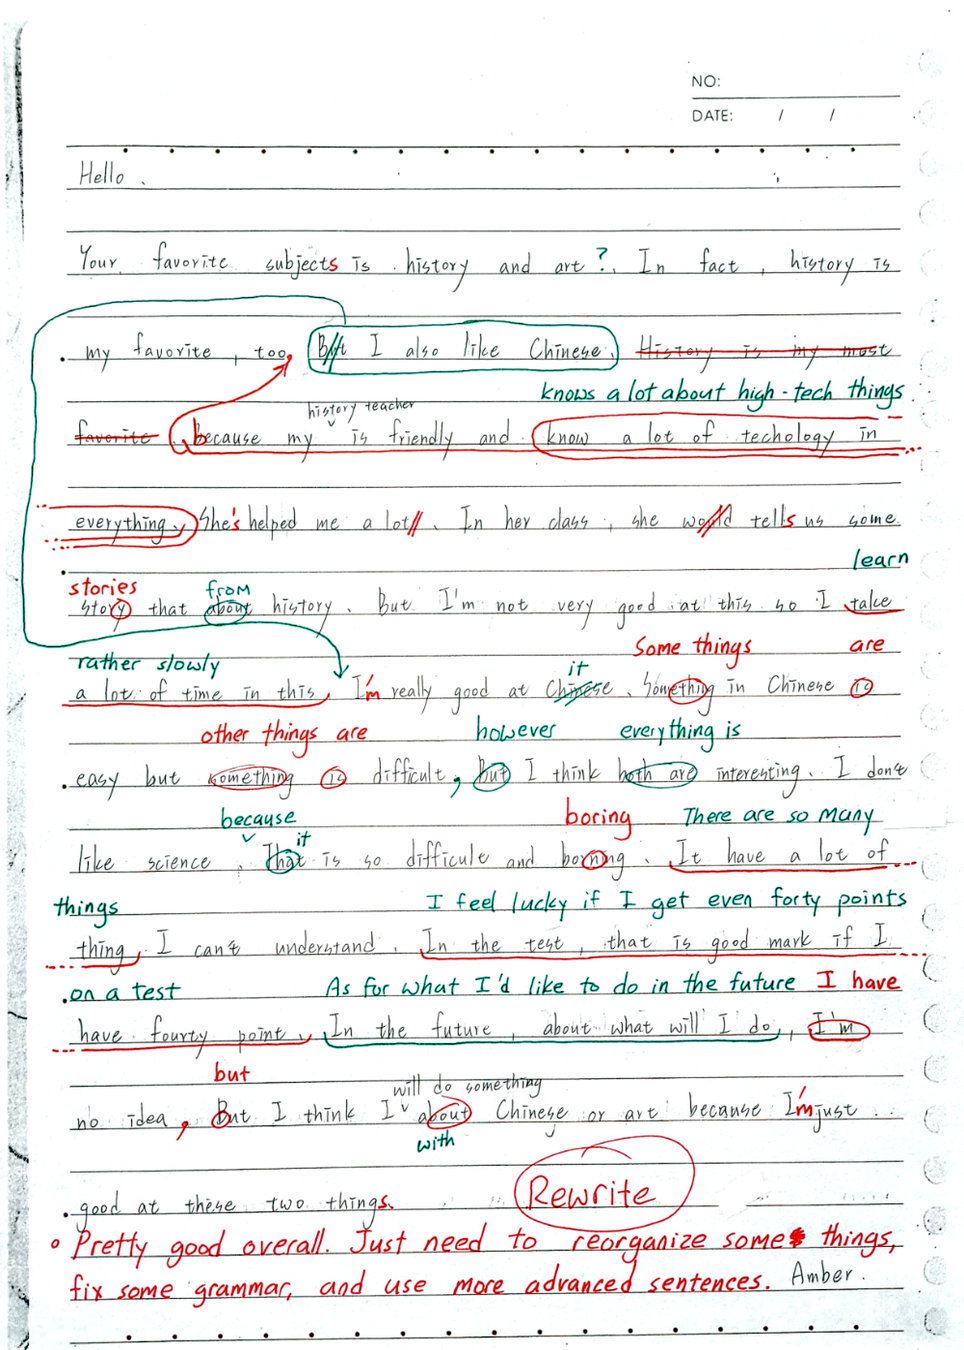 NO:
DATE: / /
Hello.
Your favorite subjects is history and art?. In fact, history is
my favorite, too, But I also like Chinese. History is my most
knows a lot about high-tech things
history teacher
favorite because my is friendly and know a lot of techology in
everything. She's helped me a lot. In her class, she would tells us some
learn
stories from
story that about history. But I'm not very good at this so I take
Some things are
rather slowly it
a lot of time in this, I'm really good at Chinese. Something in Chinese is
other things are however everything is
easy but something is difficult, But I think both are interesting. I don't
because it boring There are so many
like science. That is so difficult and borning. It have a lot of
things I feel lucky if I get even forty points
thing, I can't understand. In the test, that is good mark if I
on a test As for what I'd like to do in the future I have
have fourty point. In the future, about what will I do, I'm
but will do something
no idea, But I think I about Chinese or art because I'm just
with
good at these two things.
Rewrite
Pretty good overall. Just need to reorganize some things,
fix some grammar, and use more advanced sentences. Amber.